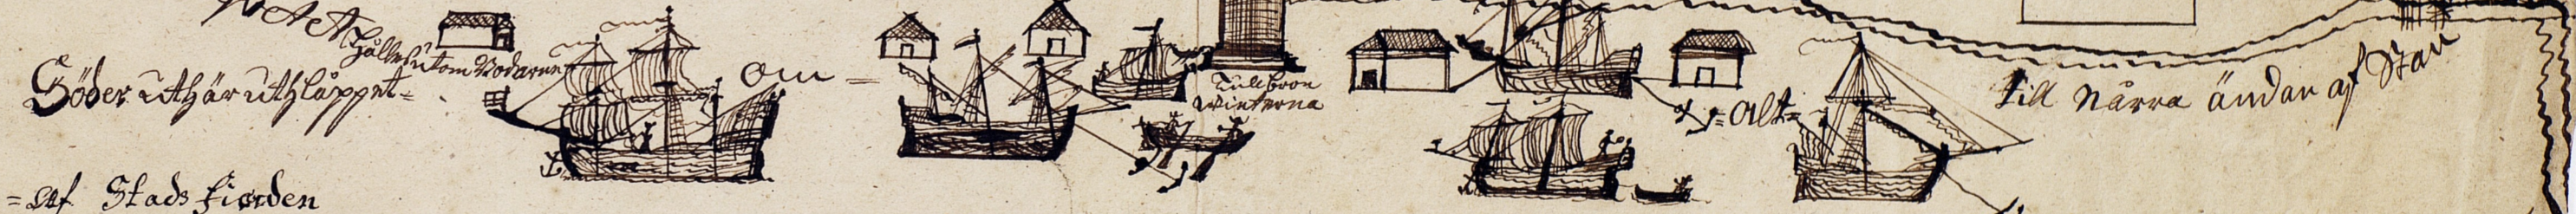 hålles utom Bodarne
Söder uthär uthlåppet=
om =
Tullbron
Winterna
= alt =
till Nårra ändan af Stan
= af Stads fiorden